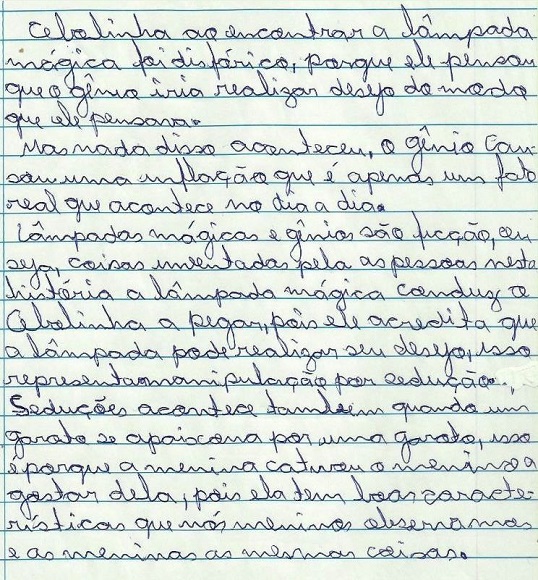 Cebolinha ao encontrar a lâmpada
mágica foi disfórico, porque ele pensou
que o gênio iria realizar desejo do modo
que ele pensara.
Mas nada disso aconteceu, o gênio cau-
sou uma inflação que é apenas um fato
real que acontece no dia a dia.
Lâmpadas mágicas e gênios são ficção, ou
seja, coisas inventadas pela as pessoas nesta
história a lâmpada mágica conduz o
Cebolinha a pegar, pois ele acredita que
a lâmpada pode realizar seu desejo, isso
representa manipulação por sedução.
Seduções acontece também quando um
garoto se apaixona por uma garota, isso
é porque a menina o menino a
gostar dela, pois ela tem boas caracte-
rísticas que nós meninos observamos
e as meninas as mesmas coisas.